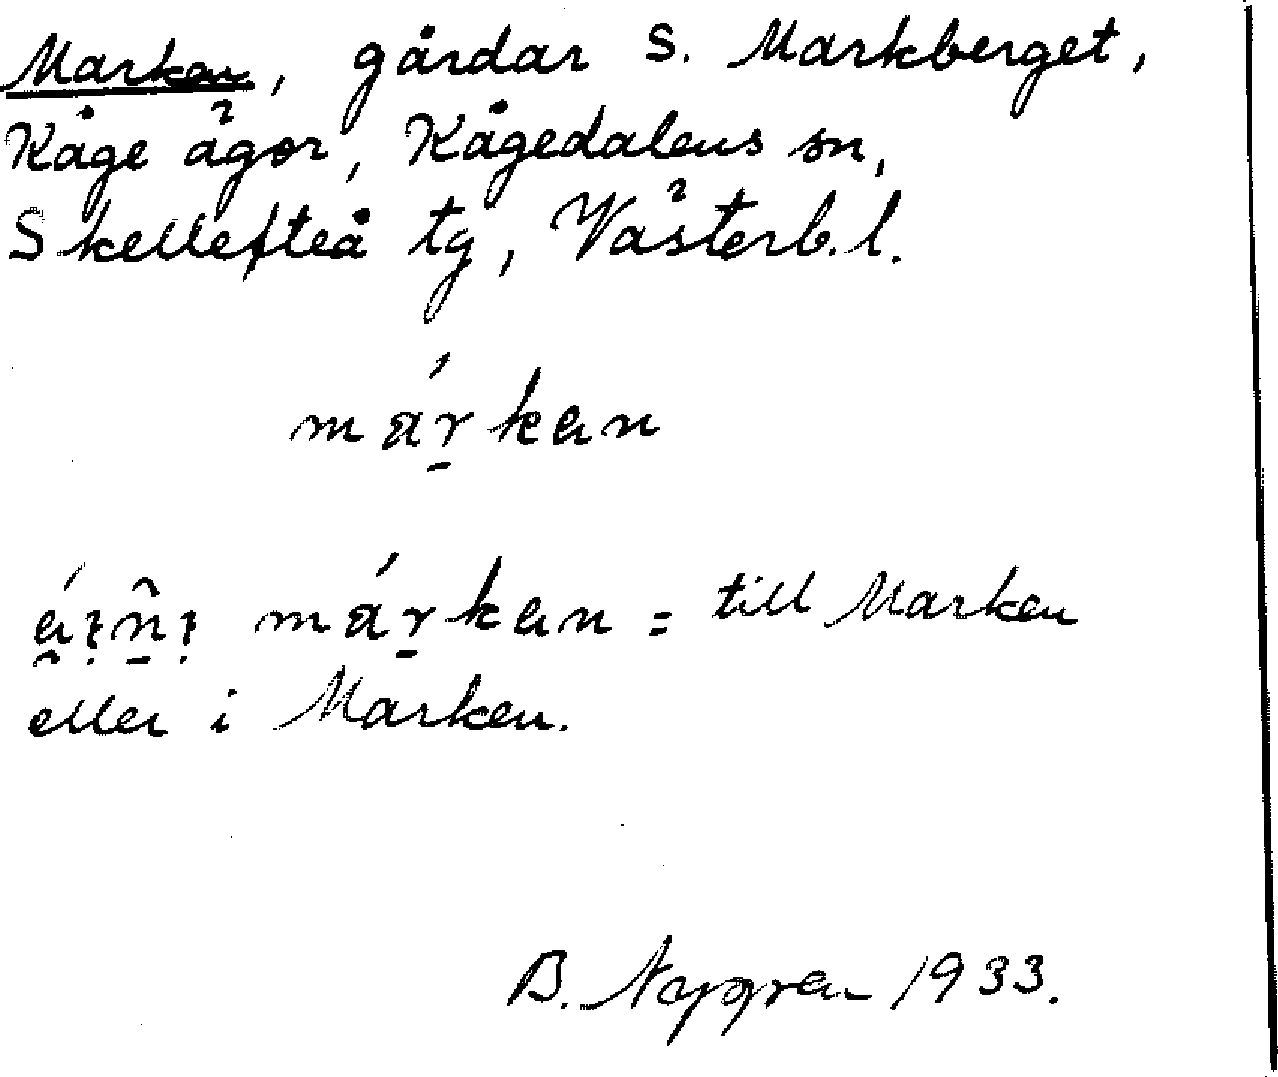 Marken, gårdar S. Markberget,
Kåge ägor, Kågedalens sn,
Skellefteå tg, Västerb.l.
márkan
márkan = till Marken
eller i Marken.
B. Nygren 1933.